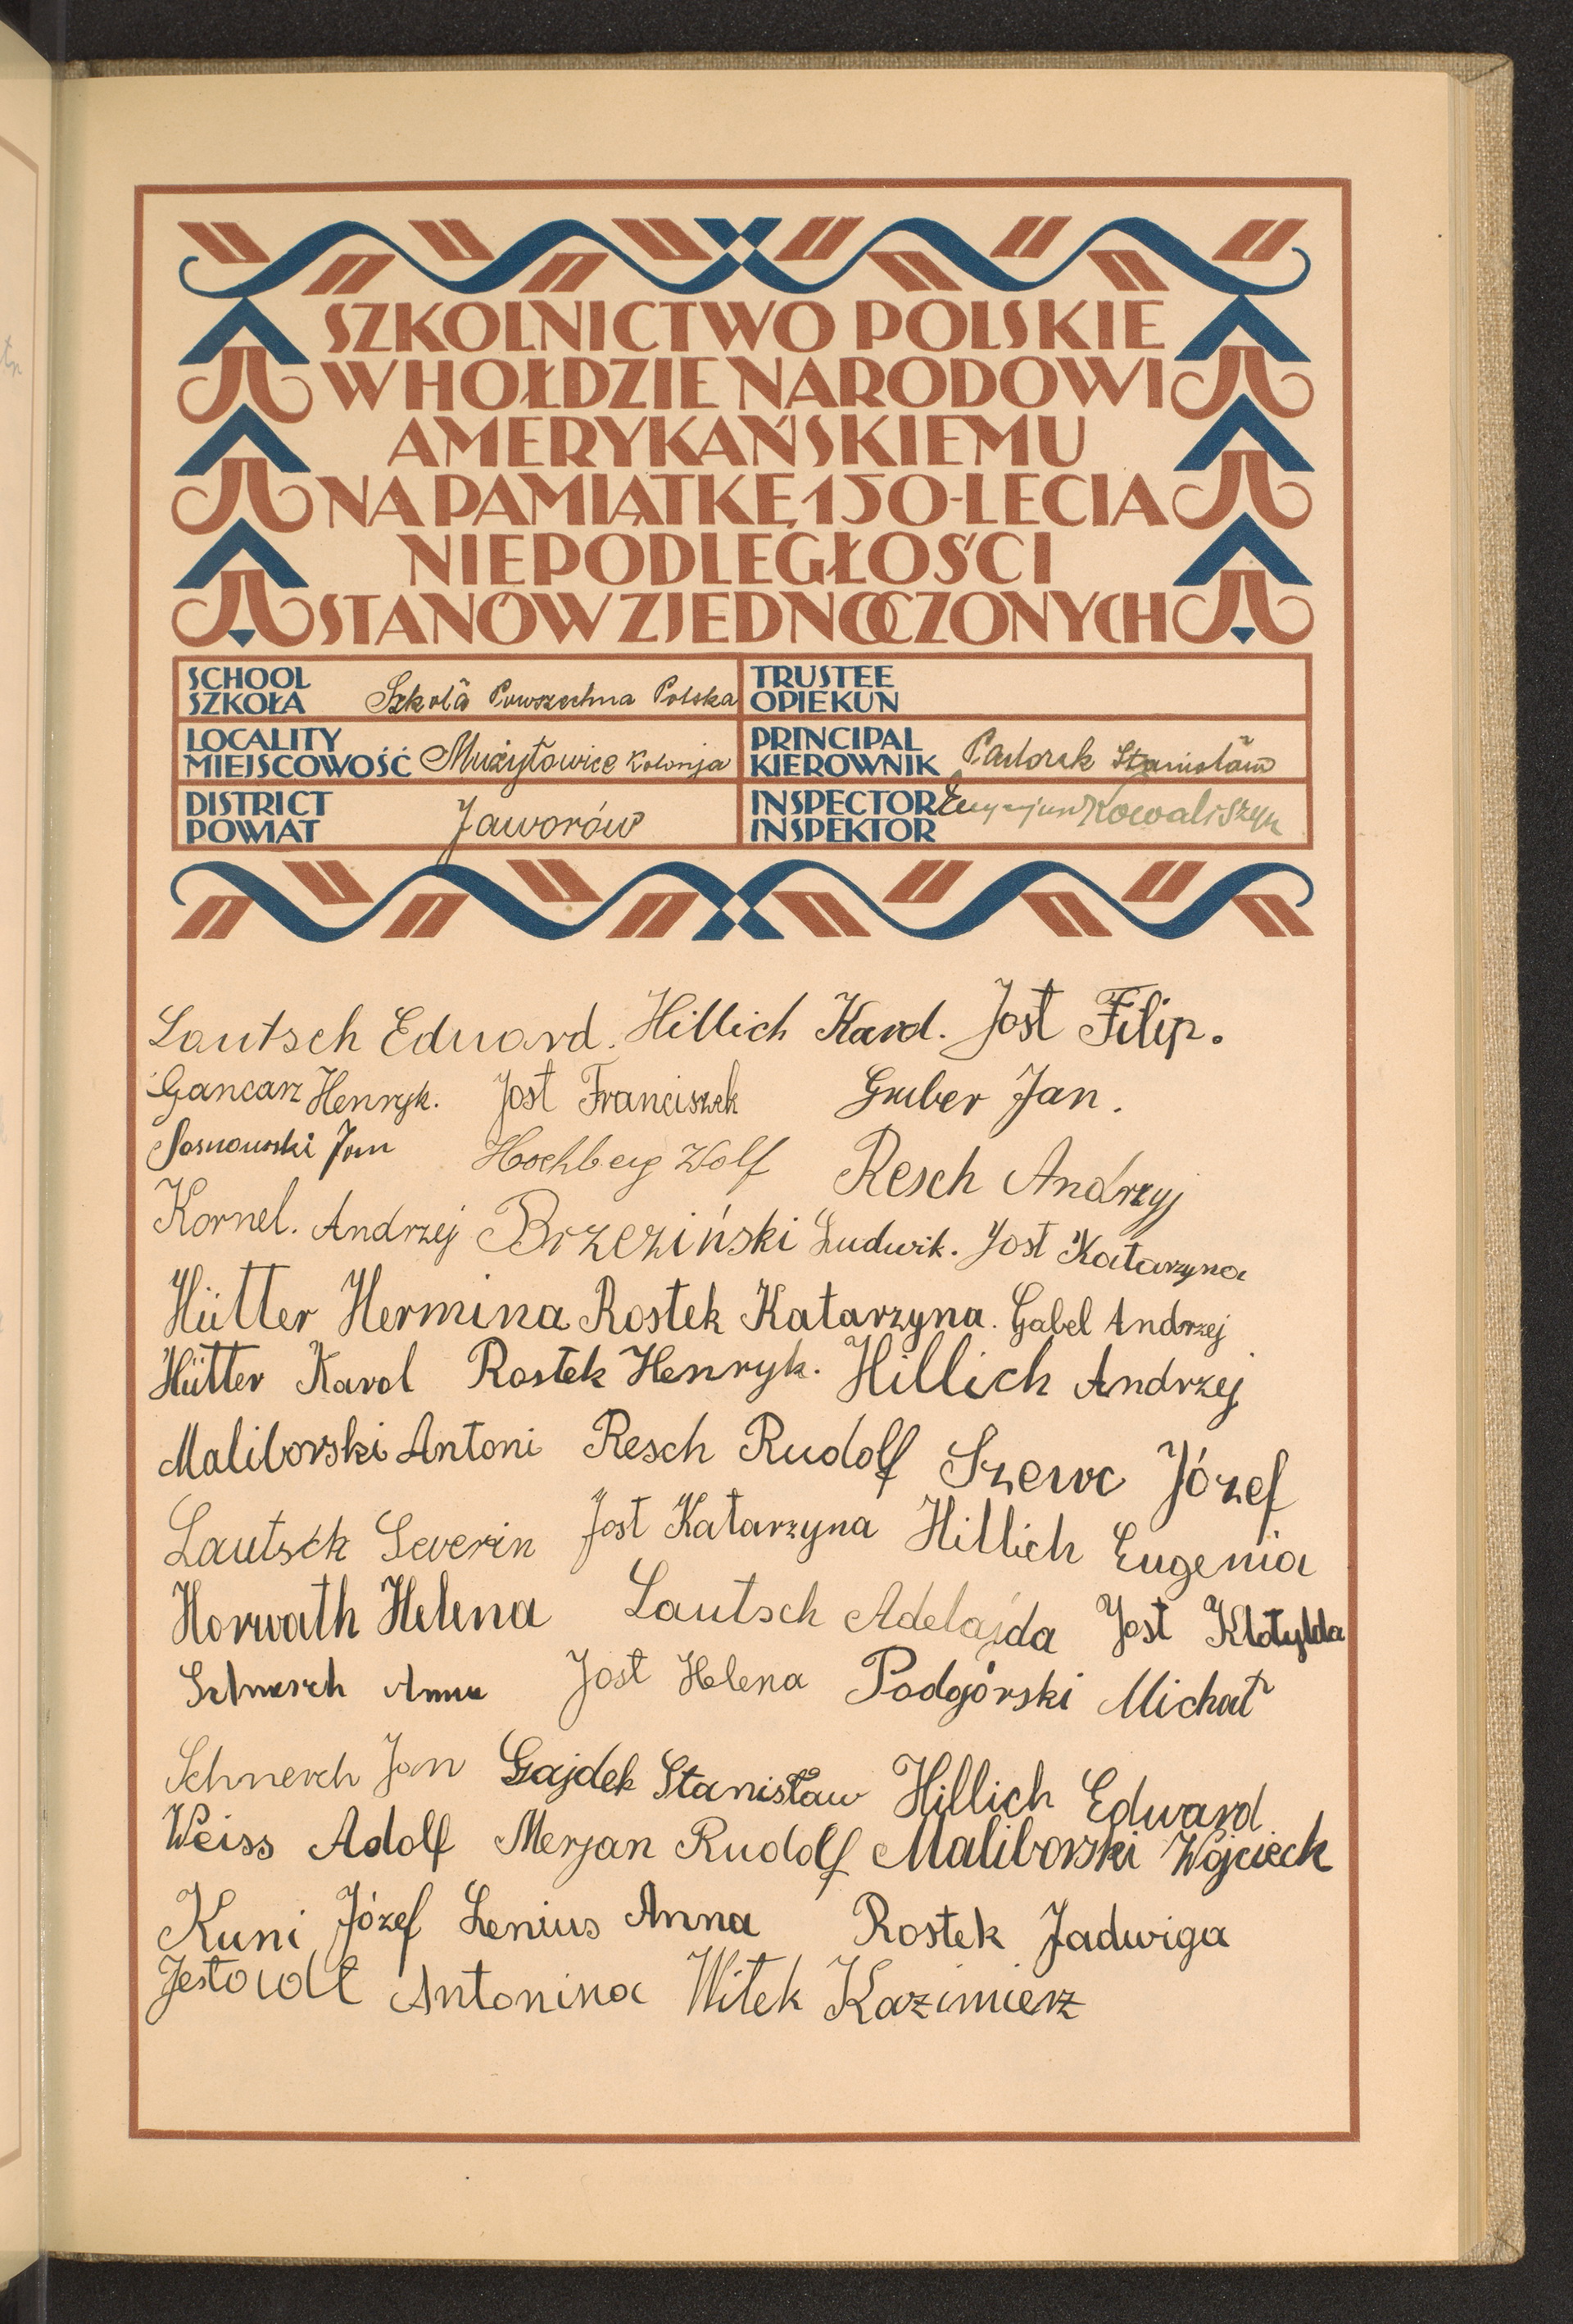 SZKOLNICTWO POLSKIE
W HOŁDZIE NARODOWI
AMERYKAŃSKIEMU
NA PAMIĄTKĘ 150-LECIA
NIEPODLEGŁOŚCI
STANÓW ZJEDNOCZONYCH
SCHOOL
SZKOŁA Szkoła Powszechna Polska
TRUSTEE
OPIEKUN
LOCALITY
MIEJSCOWOŚĆ Mużyłowice Kolonja
PRINCIPAL
KIEROWNIK Pastorek Stanisław
DISTRICT
POWIAT Jaworów
INSPECTOR
INSPEKTOR Kowaliszyn
Lautsch Eduard. Hillich Karol. Jost Filip.
Gancarz Henryk. Jost Franciszek Gruber Jan.
Sosnowski Jan Hochberg Wolf Resch Andrzyj
Kornel. Andrzej Brzeziński Ludwik. Jost Katarzyna
Hütter Hermina Rostek Katarzyna. Gabel Andrzej
Hütter Karol Rostek Henryk. Hillich Andrzej
Maliborski Antoni Resch Rudolf Szewc Józef
Lautsch Severin Jost Katarzyna Hillich Eugenia
Horwath Helena Lautsch Adelajda Jost Klotylda
Schnerch Anna Jost Helena Podgórski Michał
Schnerch Jan Gajdek Stanisław Hillich Edward
Weiss Adolf Merjan Rudolf Maliborski Wojciech
Kuni Józef Lenius Anna Rostek Jadwiga
Antonina Witek Kazimierz